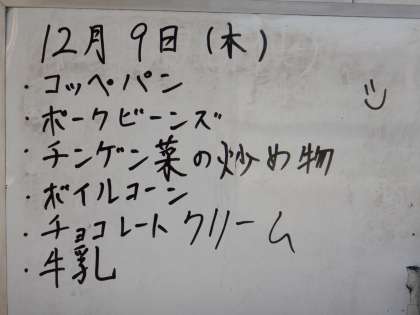 12月9日(木)
・コッペパン
・ポークビーンズ
・チンゲン菜の炒め物
・ボイルコーン
・チョコレートクリーム
・牛乳